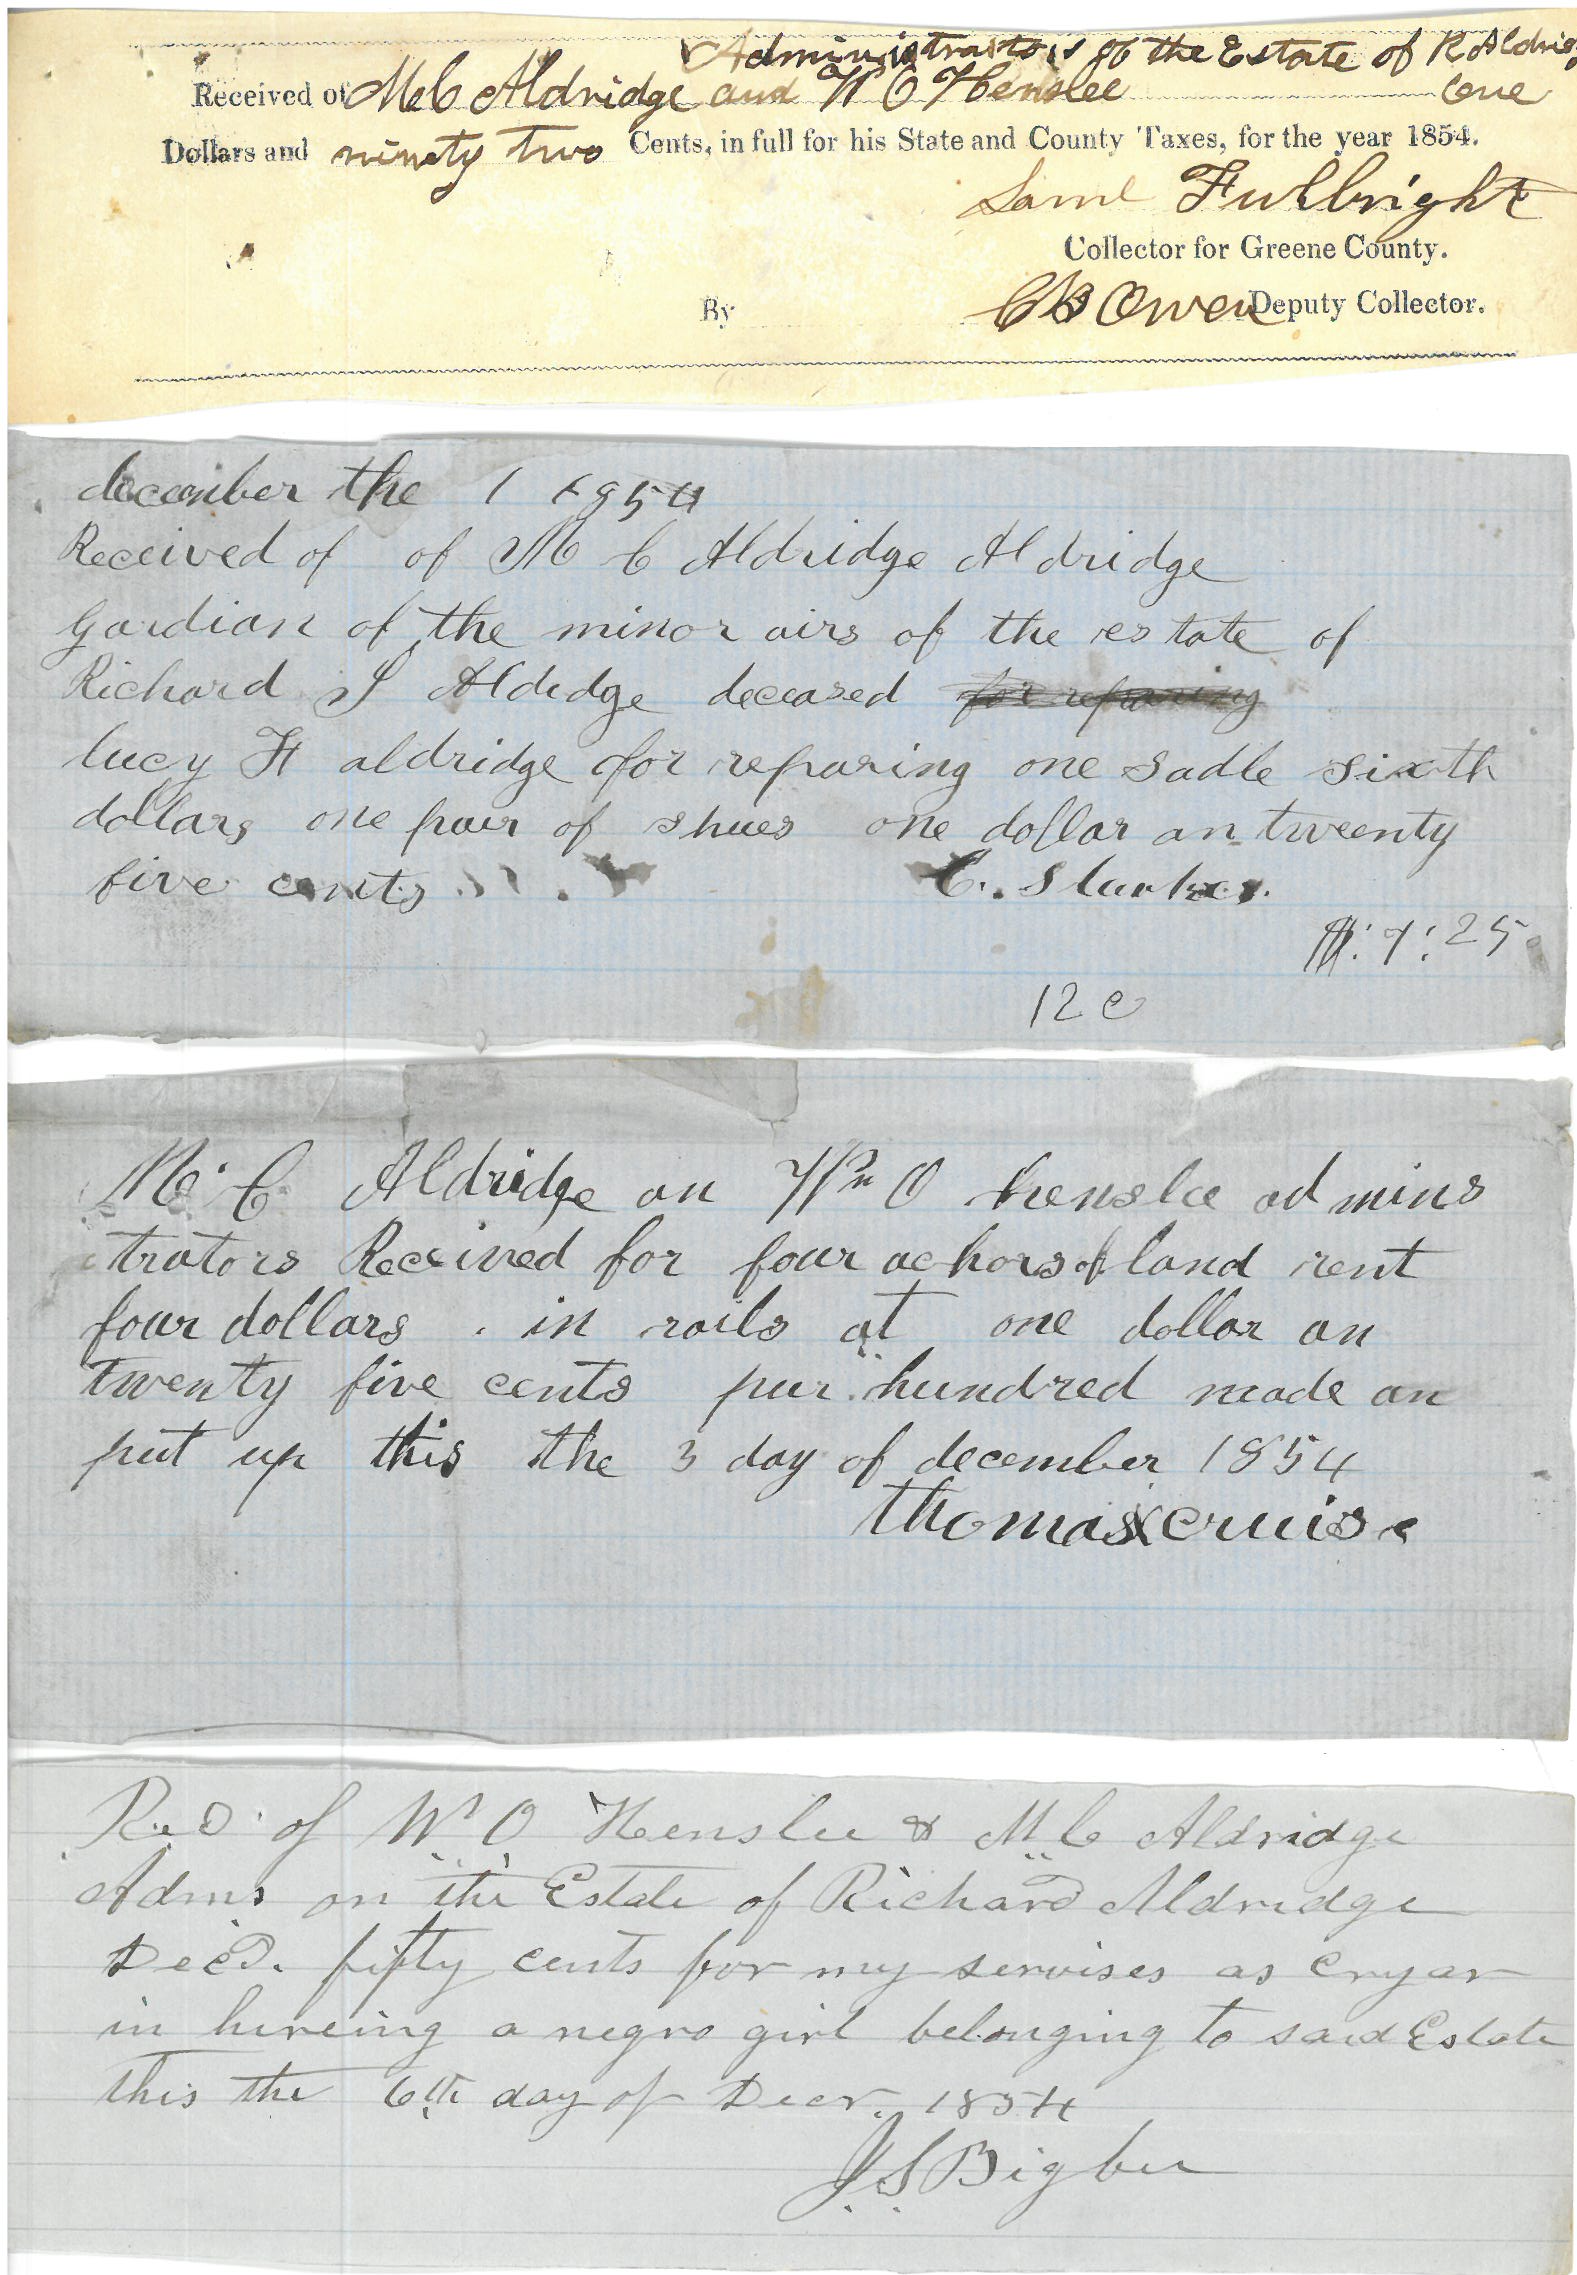 Administrators of the Estate of R Aldridge
Received of M C Aldridge and W O Henslee one
Dollars and ninety two Cents, in full for his State and County Taxes, for the year 1854.
Saml Fulbright
Collector for Greene County.
By C B Owen Deputy Collector.
december the 1 1854
Received of of M C Aldridge Aldridge
gardian of the minor airs of the estate of
Richard S Aldedge deceased for reparing
lucy H aldridge for reparing one sadle sixth
dollars one pair of shues one dollar an twenty
five cents C. Slarker.
$: 7: 25
12 c
M C Aldridge an Wm O henslee admins
trators Received for four achors of land rent
four dollars in rails at one dollar an
twenty five cents pur hundred made an
put up this the 3 day of december 1854
thomas X cruise
Recd of Wm O Henslee & M C Aldridge
Adms on the Estate of Richard Aldridge
Decd. fifty cents for my servises as cryar
in hireing a negro girl belonging to said Estate
this the 6th day of Decr. 1854
J S Bigbee